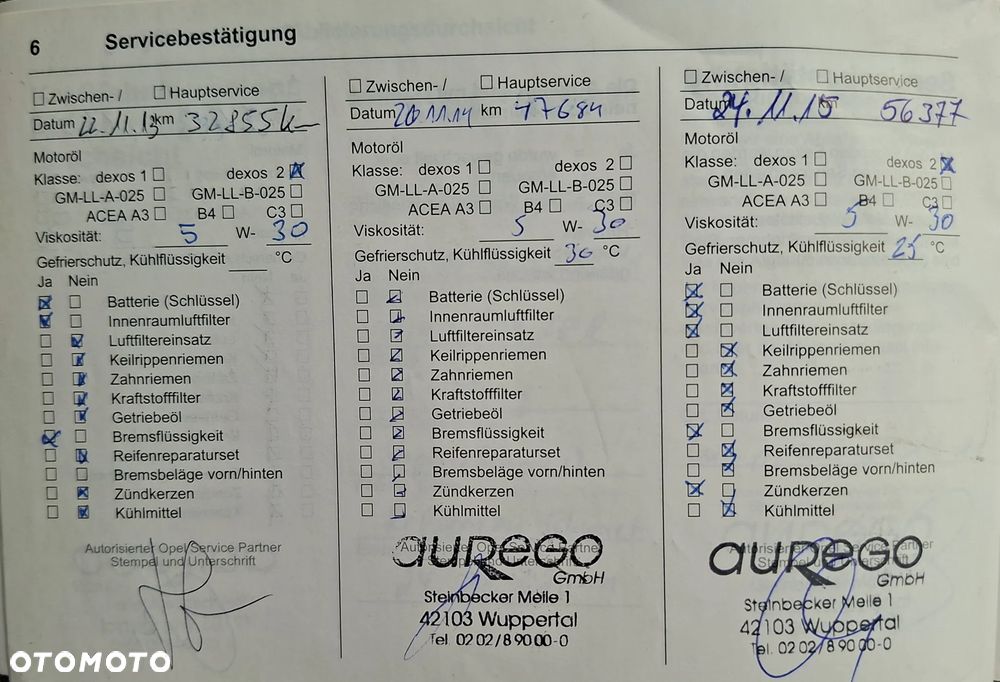 6 Servicebestätigung
Zwischen- / Hauptservice
Datum 22.11.13 km 32855km
Motoröl
Klasse: dexos 1 dexos 2
GM-LL-A-025 GM-LL-B-025
ACEA A3 B4 C3
Viskosität: 5 W- 30
Gefrierschutz, Kühlflüssigkeit °C
Ja Nein
Batterie (Schlüssel)
Innenraumluftfilter
Luftfiltereinsatz
Keilrippenriemen
Zahnriemen
Kraftstofffilter
Getriebeöl
Bremsflüssigkeit
Reifenreparaturset
Bremsbeläge vorn/hinten
Zündkerzen
Kühlmittel
Autorisierter Opel Service Partner
Stempel und Unterschrift
Zwischen- / Hauptservice
Datum 20.11.14 km 47684
Motoröl
Klasse: dexos 1 dexos 2
GM-LL-A-025 GM-LL-B-025
ACEA A3 B4 C3
Viskosität: 5 W- 30
Gefrierschutz, Kühlflüssigkeit 30 °C
Ja Nein
Batterie (Schlüssel)
Innenraumluftfilter
Luftfiltereinsatz
Keilrippenriemen
Zahnriemen
Kraftstofffilter
Getriebeöl
Bremsflüssigkeit
Reifenreparaturset
Bremsbeläge vorn/hinten
Zündkerzen
Kühlmittel
Autorisierter Opel Service Partner
Stempel und Unterschrift
aUREGO
GmbH
Steinbecker Meile 1
42103 Wuppertal
Tel. 02 02/8 90 00-0
Zwischen- / Hauptservice
Datum 24.11.15 km 56377
Motoröl
Klasse: dexos 1 dexos 2
GM-LL-A-025 GM-LL-B-025
ACEA A3 B4 C3
Viskosität: 5 W- 30
Gefrierschutz, Kühlflüssigkeit 25 °C
Ja Nein
Batterie (Schlüssel)
Innenraumluftfilter
Luftfiltereinsatz
Keilrippenriemen
Zahnriemen
Kraftstofffilter
Getriebeöl
Bremsflüssigkeit
Reifenreparaturset
Bremsbeläge vorn/hinten
Zündkerzen
Kühlmittel
Autorisierter Opel Service Partner
Stempel und Unterschrift
aUREGO
GmbH
Steinbecker Meile 1
42103 Wuppertal
Tel. 02 02/8 90 00-0
OTOMOTO